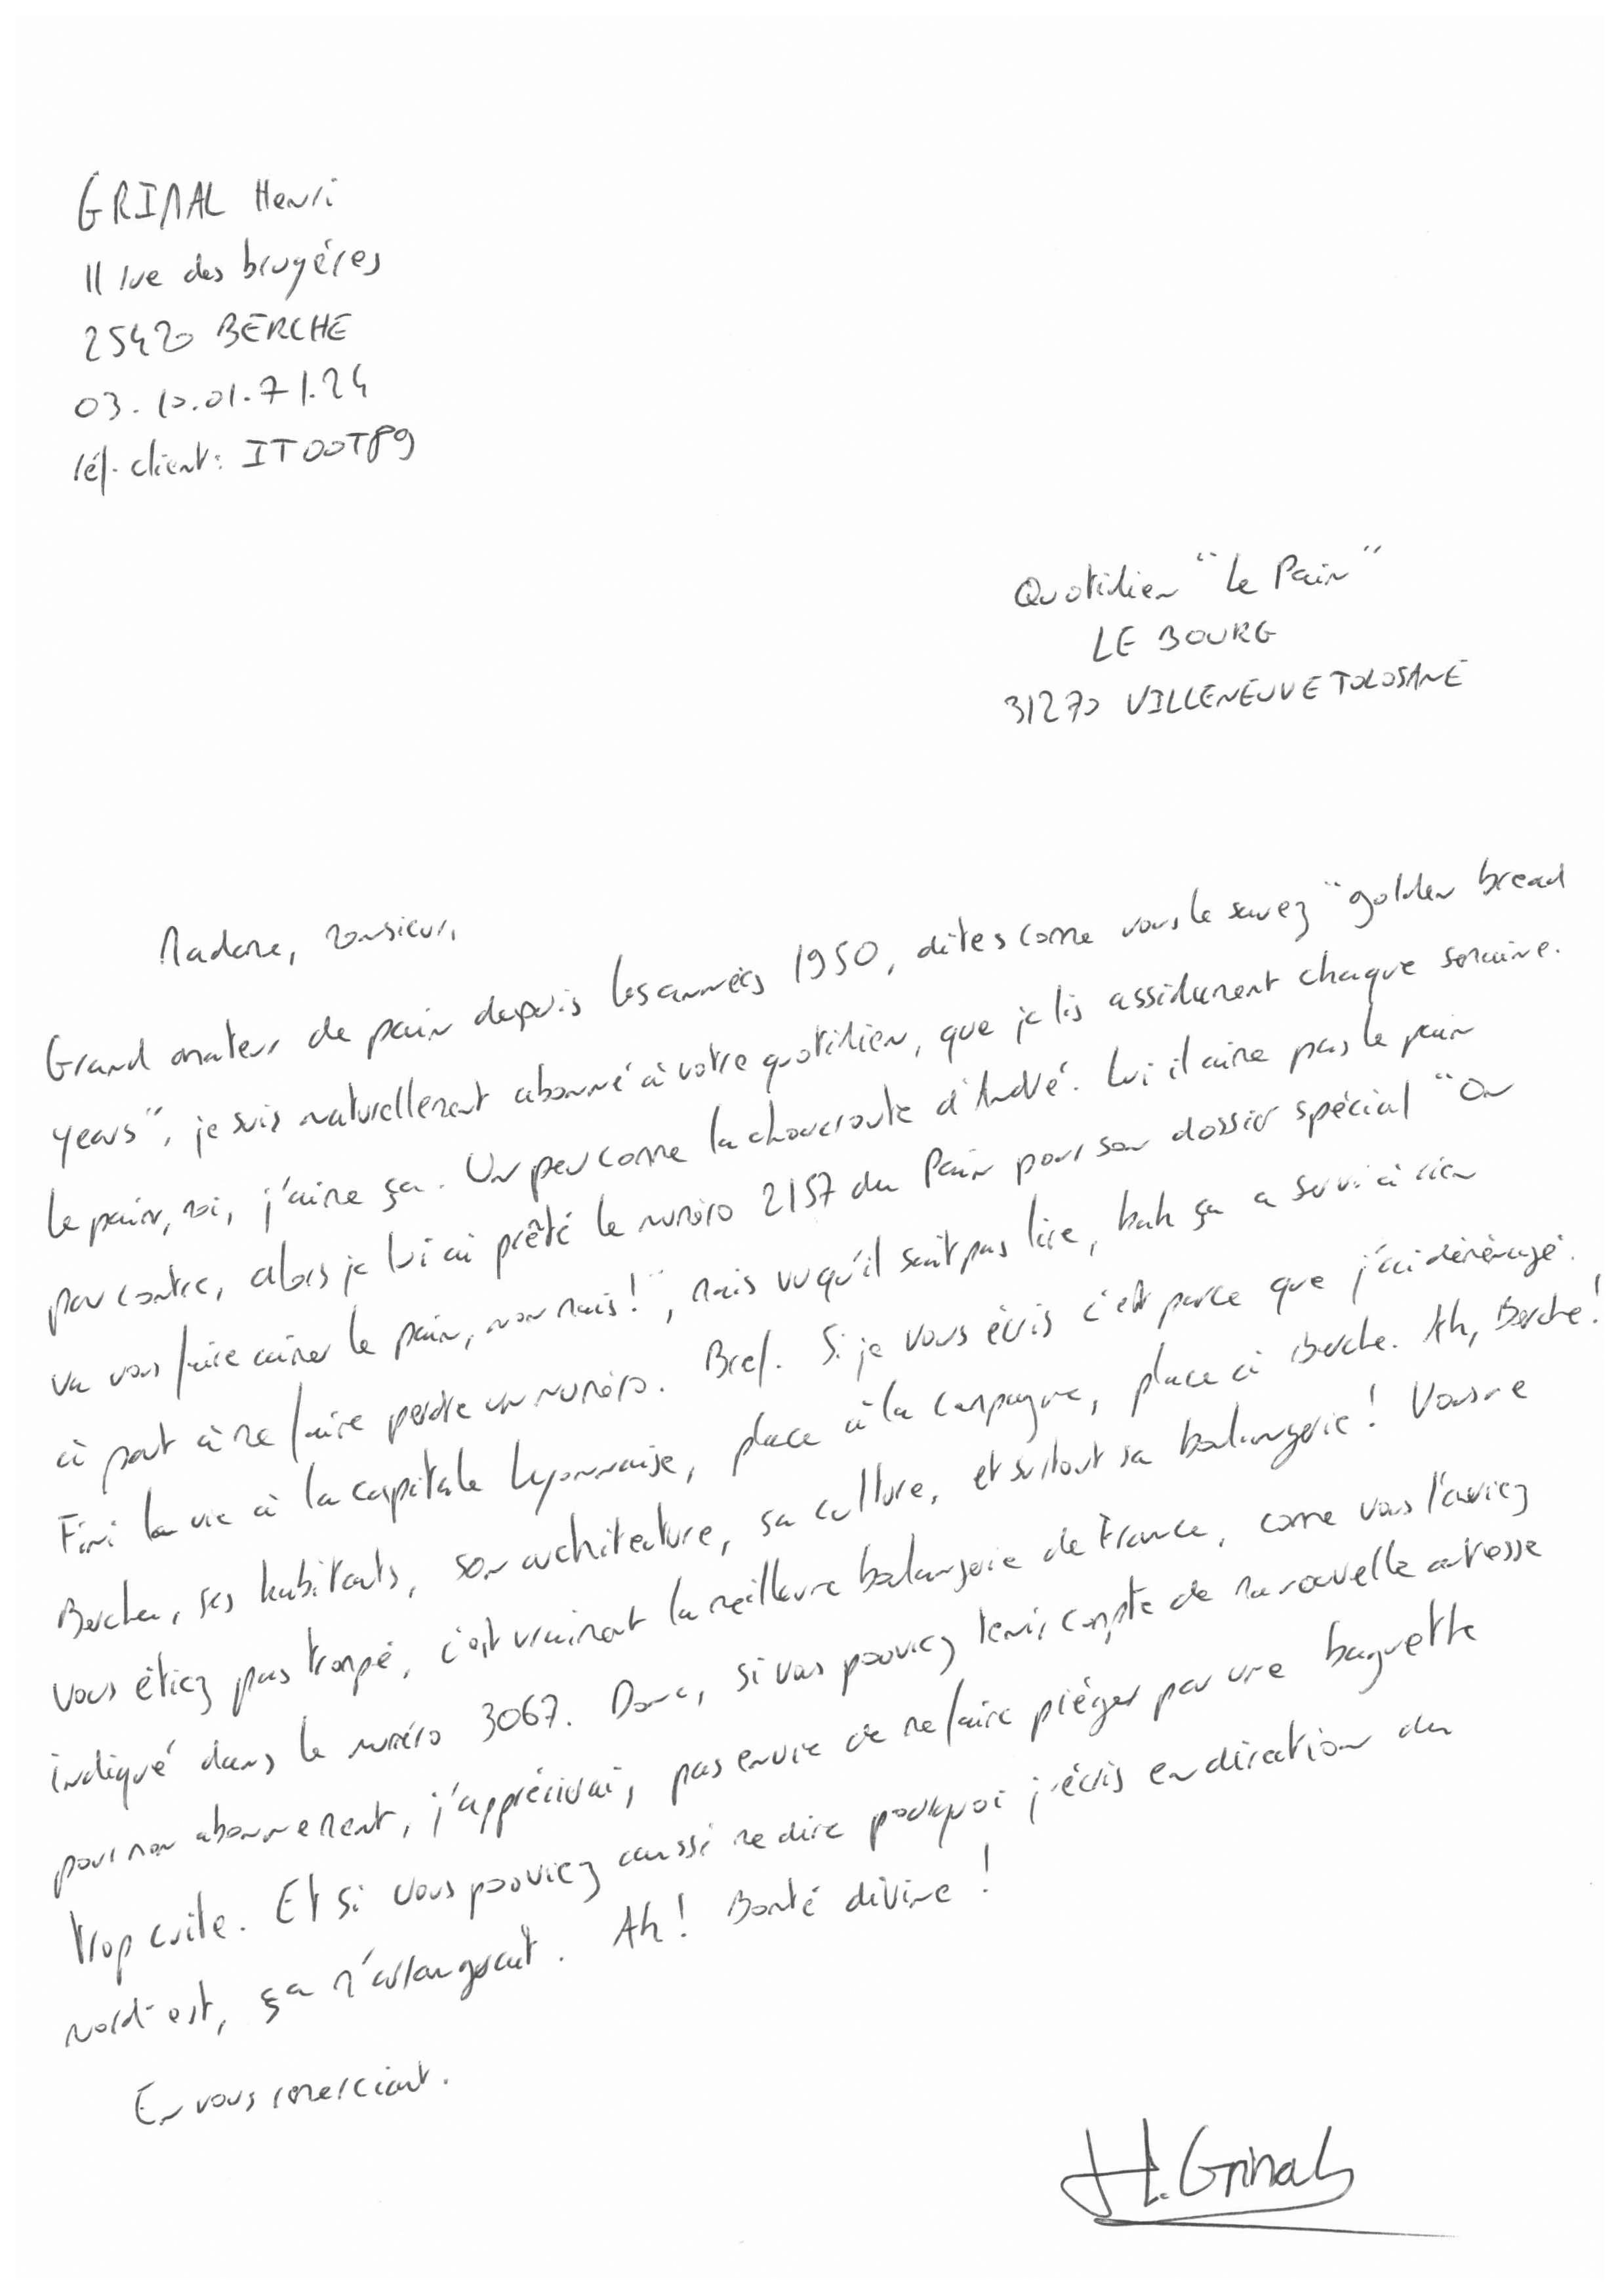 GRIMAL Henri
11 rue des bruyéres
25420 BERCHE
03.10.01.71.24
réf. client: IT00T89
Quotidien "Le Pain"
LE BOURG
31270 VILLENEUVE TOLOSANE
Madame, monsieur,
Grand amateur de pain depuis les années 1950, dites comme vous le savez "golden bread
years", je suis naturellement abonné à votre quotidien, que je lis assidument chaque semaine.
Le pain, moi, j'aime ça. Un peu comme la choucroute d'André. Lui il aime pas le pain
par contre, alors je lui ai prêté le numéro 2157 du Pain pour son dossier spécial "On
va vous faire aimer le pain, non mais!", mais vu qu'il sait pas lire, bah ça a servi à rien
à part à me faire perdre un numéro. Bref. Si je vous écris c'est parce que j'ai déménagé.
Fini la vie à la capitale Lyonnaise, place à la campagne, place à Berche. Ah, Berche!
Berche, ses habitants, son architecture, sa culture, et surtout sa boulangerie! Vous ne
vous étiez pas trompé, c'est vraiment la meilleure boulangerie de France, comme vous l'aviez
indiqué dans le numéro 3067. Donc, si vous pouviez tenir compte de ma nouvelle adresse
pour mon abonnement, j'apprécierai, pas envie de me faire piéger par une baguette
trop cuite. Et si vous pouviez aussi me dire pourquoi j'écris en direction du
nord-est, ça m'arrangerait. Ah! Bonté divine!
En vous remerciant.
H. Grimal